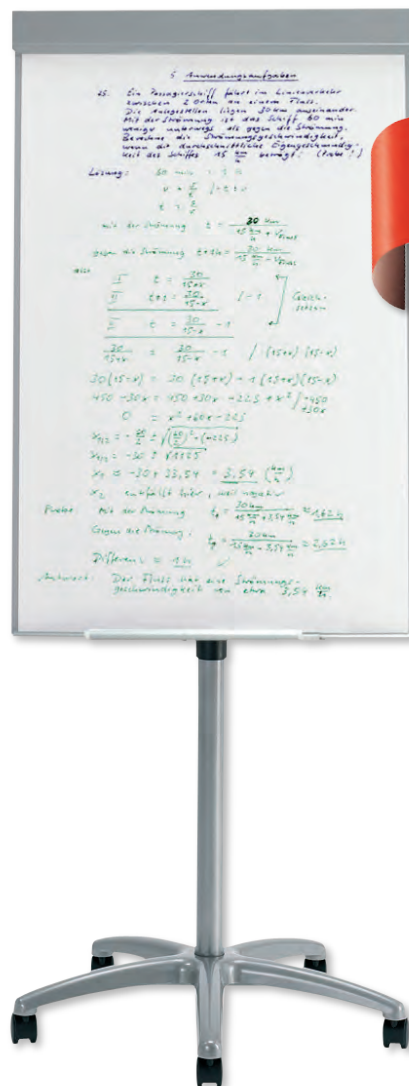 5. Anwendungsaufgaben
25. Ein Passagierschiff fährt im Linienverkehr
zwischen 2 Orten an einem Fluss.
Die Anlegestellen liegen 30 km auseinander.
Mit der Strömung ist das Schiff 60 min
weniger unterwegs als gegen die Strömung.
Berechne die Strömungsgeschwindigkeit,
wenn die durchschnittliche Eigengeschwindig-
keit des Schiffes 15 km/h beträgt! (Probe!)
Lösung: 60 min = 1 h
v = s/t | · t : v
t = s/v
mit der Strömung t = 30 km / (15 km/h + v Fluss)
gegen die Strömung t+1h = 30 km / (15 km/h - v Fluss)
also
I t = 30/(15+x)
II t+1 = 30/(15-x) | -1
II t = 30/(15-x) - 1
Gleich-
setzen
30/(15+x) = 30/(15-x) - 1 | · (15+x) (15-x)
30(15-x) = 30(15+x) - 1(15+x)(15-x)
450 - 30x = 450 + 30x - 225 + x² | -450 +30x
0 = x² + 60x - 225
x1/2 = - 60/2 ± √((60/2)² - (-225))
x1/2 = -30 ± √1125
x1 = -30 + 33,54 = 3,54 (km/h)
x2 entfällt hier, weil negativ
Probe: Mit der Strömung t1 = 30 km / (15 km/h + 3,54 km/h) ≈ 1,62 h
Gegen die Strömung: t2 = 30 km / (15 km/h - 3,54 km/h) ≈ 2,62 h
Differenz = 1 h
Antwort: Der Fluss hat eine Strömungs-
geschwindigkeit von etwa 3,54 km/h.